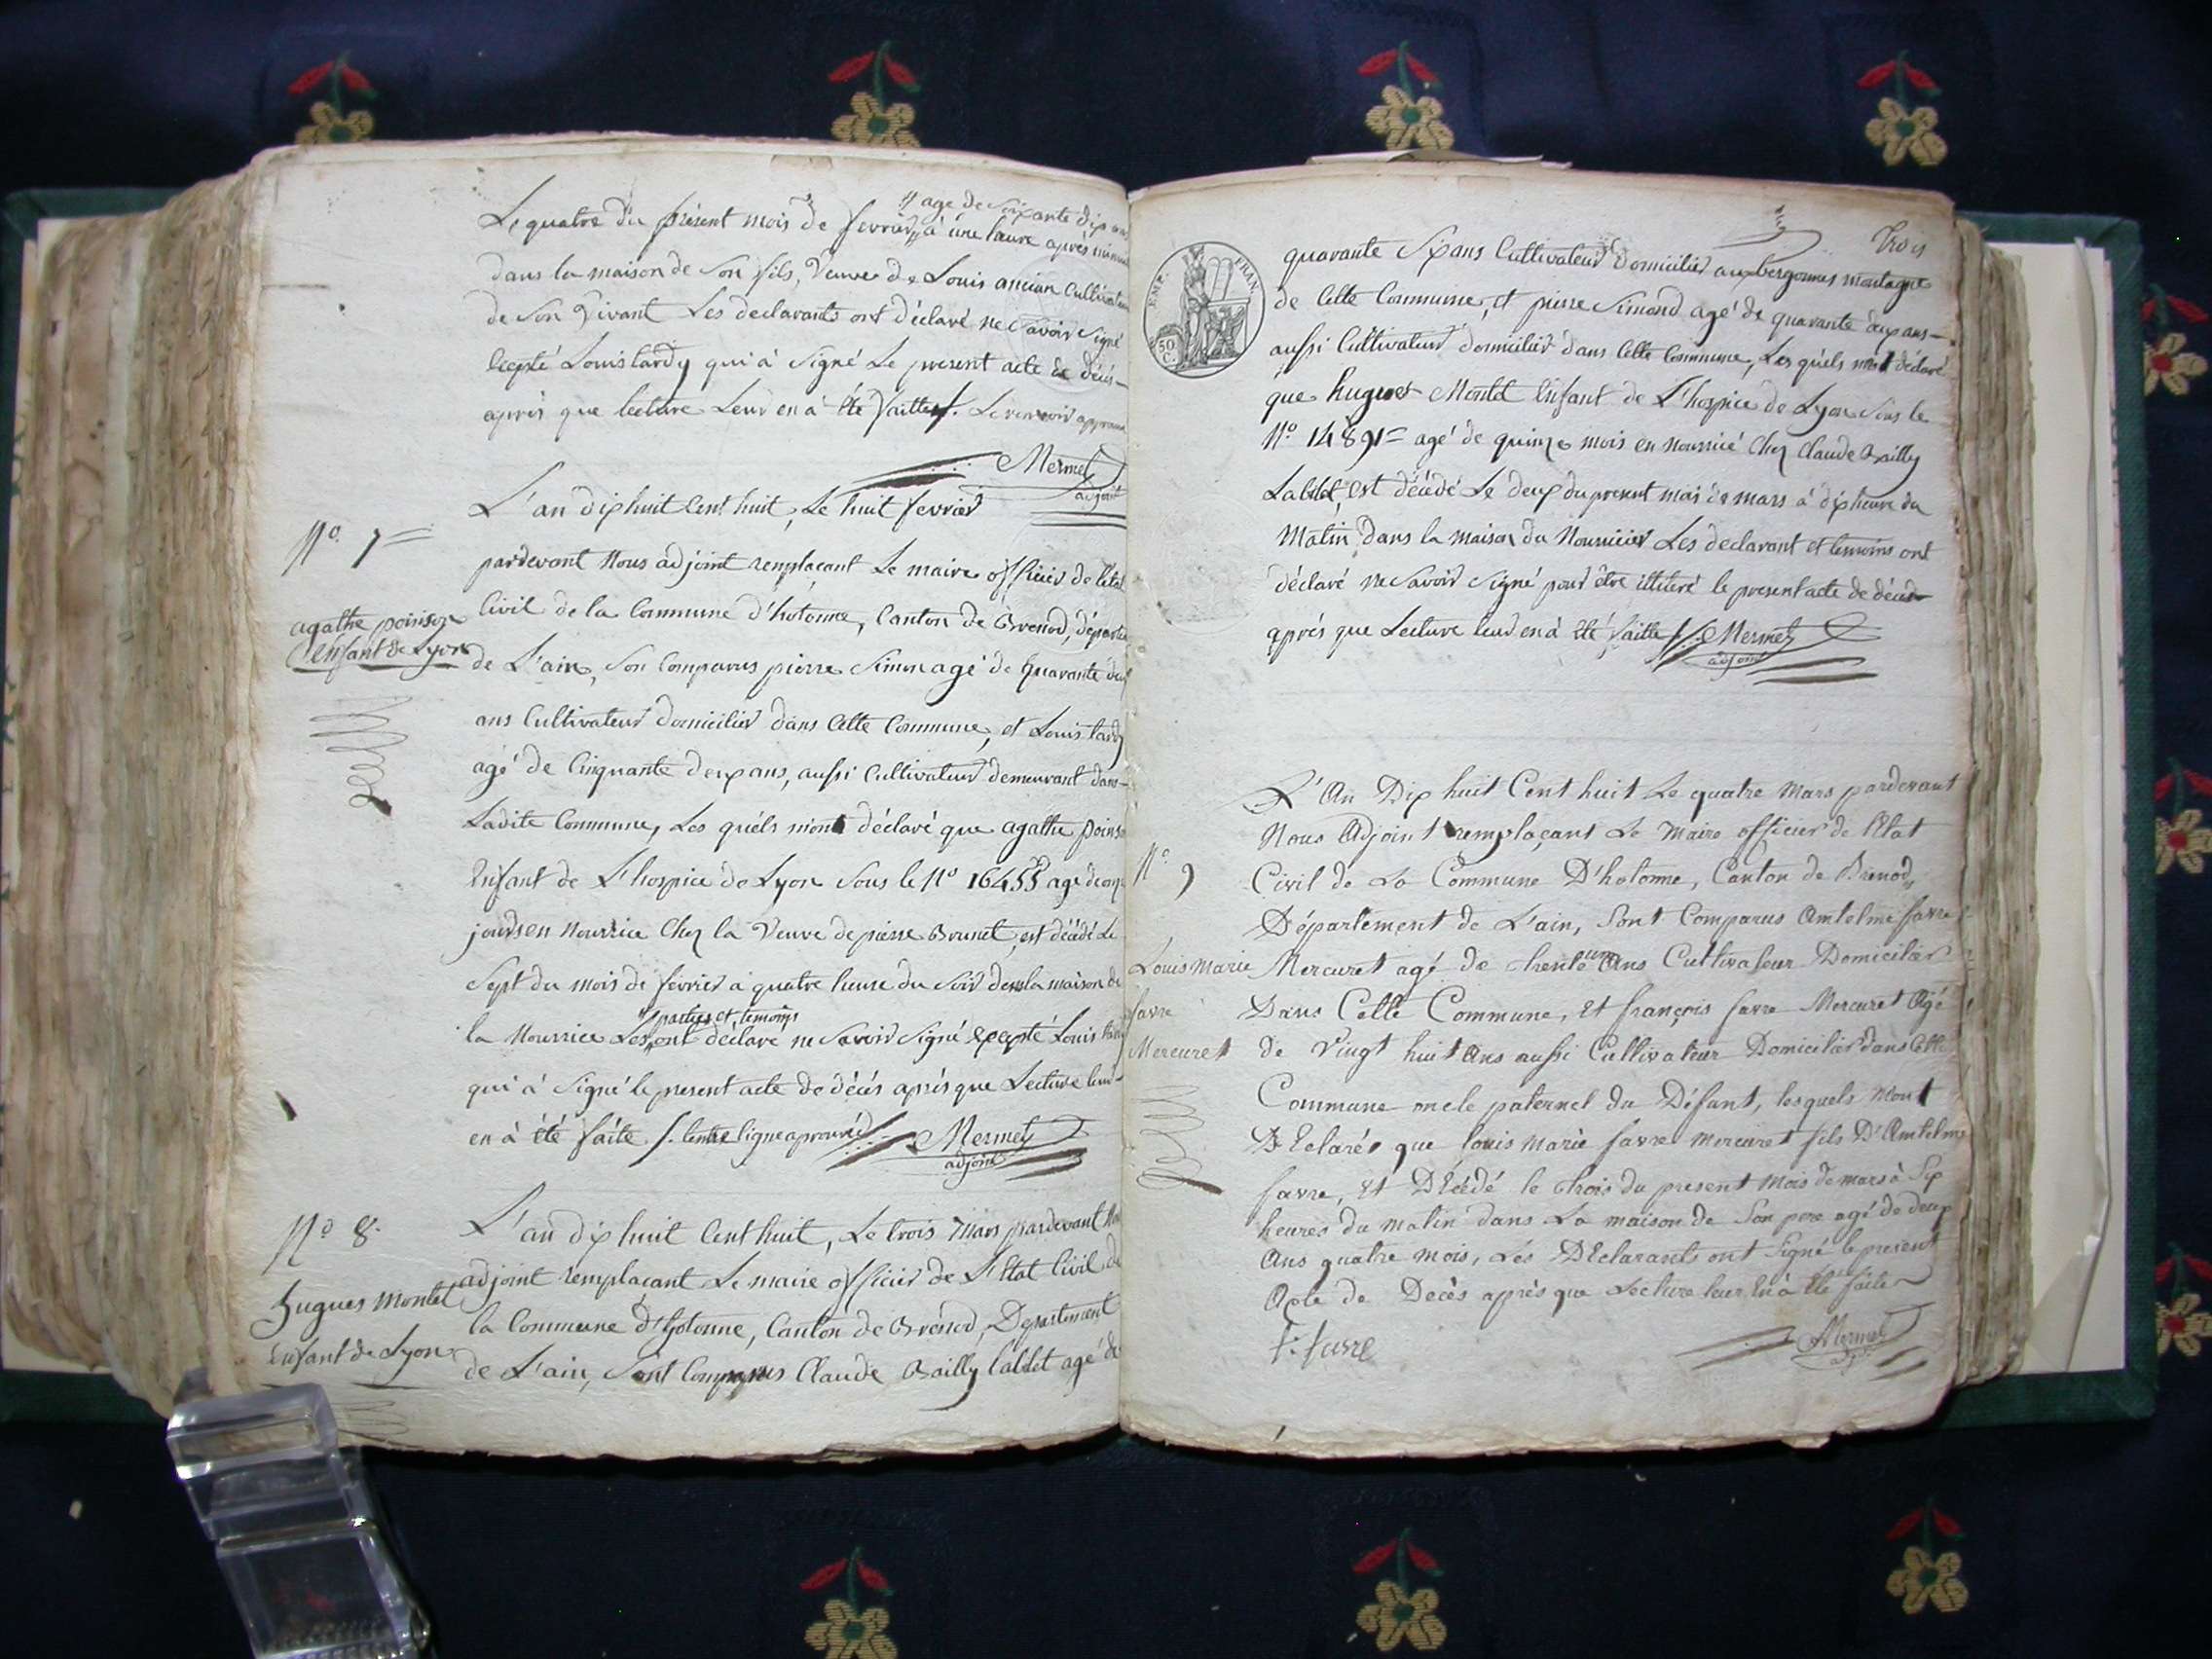 // age de soixante dix ans
Le quatre du présent mois de fevrier // à une heure après minuit
dans la maison de Son fils, Veuve de Louis ancian Cultivateur
de Son Vivant Les declarants ont déclaré ne Savoir Signé
Excepté Louis tardy qui à Signé Le present acte de décès
après que lecture Leur en à été faitte /. Le renvoir approuvé
Mermet
adjoint
N° 7
agathe poinson
Enfant de Lyon
L'an dix huit Cent huit, Le huit fevrier
pardevant Nous adjoint remplaçant Le maire officier de l'état
Civil de la Commune d'hotonne, Canton de Brenod, départe
de L'ain, Son Comparus pierre Simon agé de quarante deux
ans Cultivateur domicilier dans Cette Commune, et Louis tardy
agé de Cinquante deux ans, aussi Cultivateur demeurant dans
Ladite Commune, Les quéls m'ont déclaré que agathe poinson
Enfant de L'hospice de Lyon Sous le N° 16455 agé de onze
jours en Nourrice Chez la Veuve de pierre Brunet, est décédé Le
Sept du mois de fevrier à quatre heure du Soir dans la maison de
parties et temoins
la Nourrice Les // ont déclaré ne Savoir Signé Excepté Louis tardy
qui à Signé le present acte de décès après que Lecture leur
en à été faite /. l'entre ligne aprouvé
Mermet
adjoint
N° 8
hugues montet
Enfant de Lyon
L'an dix huit Cent huit, Le trois Mars pardevant Nous
adjoint remplaçant Le maire officier de L'Etat Civil de
la Commune d'hotonne, Canton de Brénod, Département
de L'ain, Sont Comparus Claude Bailly Lablet agé de
Trois
EMP. FRAN.
50 C.
quarante Six ans Cultivateur domicilier aux bergonnes montagne
de Cette Commune, et pierre Simond agé de quarante deux ans
aussi Cultivateur domicilier dans Cette Commune, Les quéls mont déclaré
que hugues Montet Enfant de L'hospice de Lyon Sous le
N° 14891 agé de quinze mois en Nourrice Chez Claude Bailly
Lablet, est décédé Le deux du present mois de mars à dix heure du
Matin dans la maison du Nourricier Les declarant et temoins ont
déclaré ne Savoir Signé pour être illitéré le present acte de décès
après que Lecture leur en à été faitte /.
Mermet
adjoint
N° 9
Louis Marie
favre
Mercuret
L'An Dix huit Cent huit Le quatre Mars pardevant
Nous Adjoint remplaçant Le Maire officier de l'Etat
Civil de La Commune D'hotonne, Canton de Brénod,
Département de L'ain, Sont Comparus Antelme favre
Mercuret agé de trente un Ans Cultivateur Domicilier
Dans Cette Commune, et françois favre Mercuret Agé
de Vingt huit Ans aussi Cultivateur Domicilier dans Cette
Commune oncle paternel du Défunt, lesquels Mont
DEclarés que louis marie favre mercuret fils D'Antelme
favre, et DEcédé le trois du present Mois de mars à Six
heures du matin dans La maison de Son pere agé de deux
Ans quatre mois, Les DEclarants ont Signé le present
Acte de Decès après que Lecture leur En à été faite
F: favre
Mermet
adjt